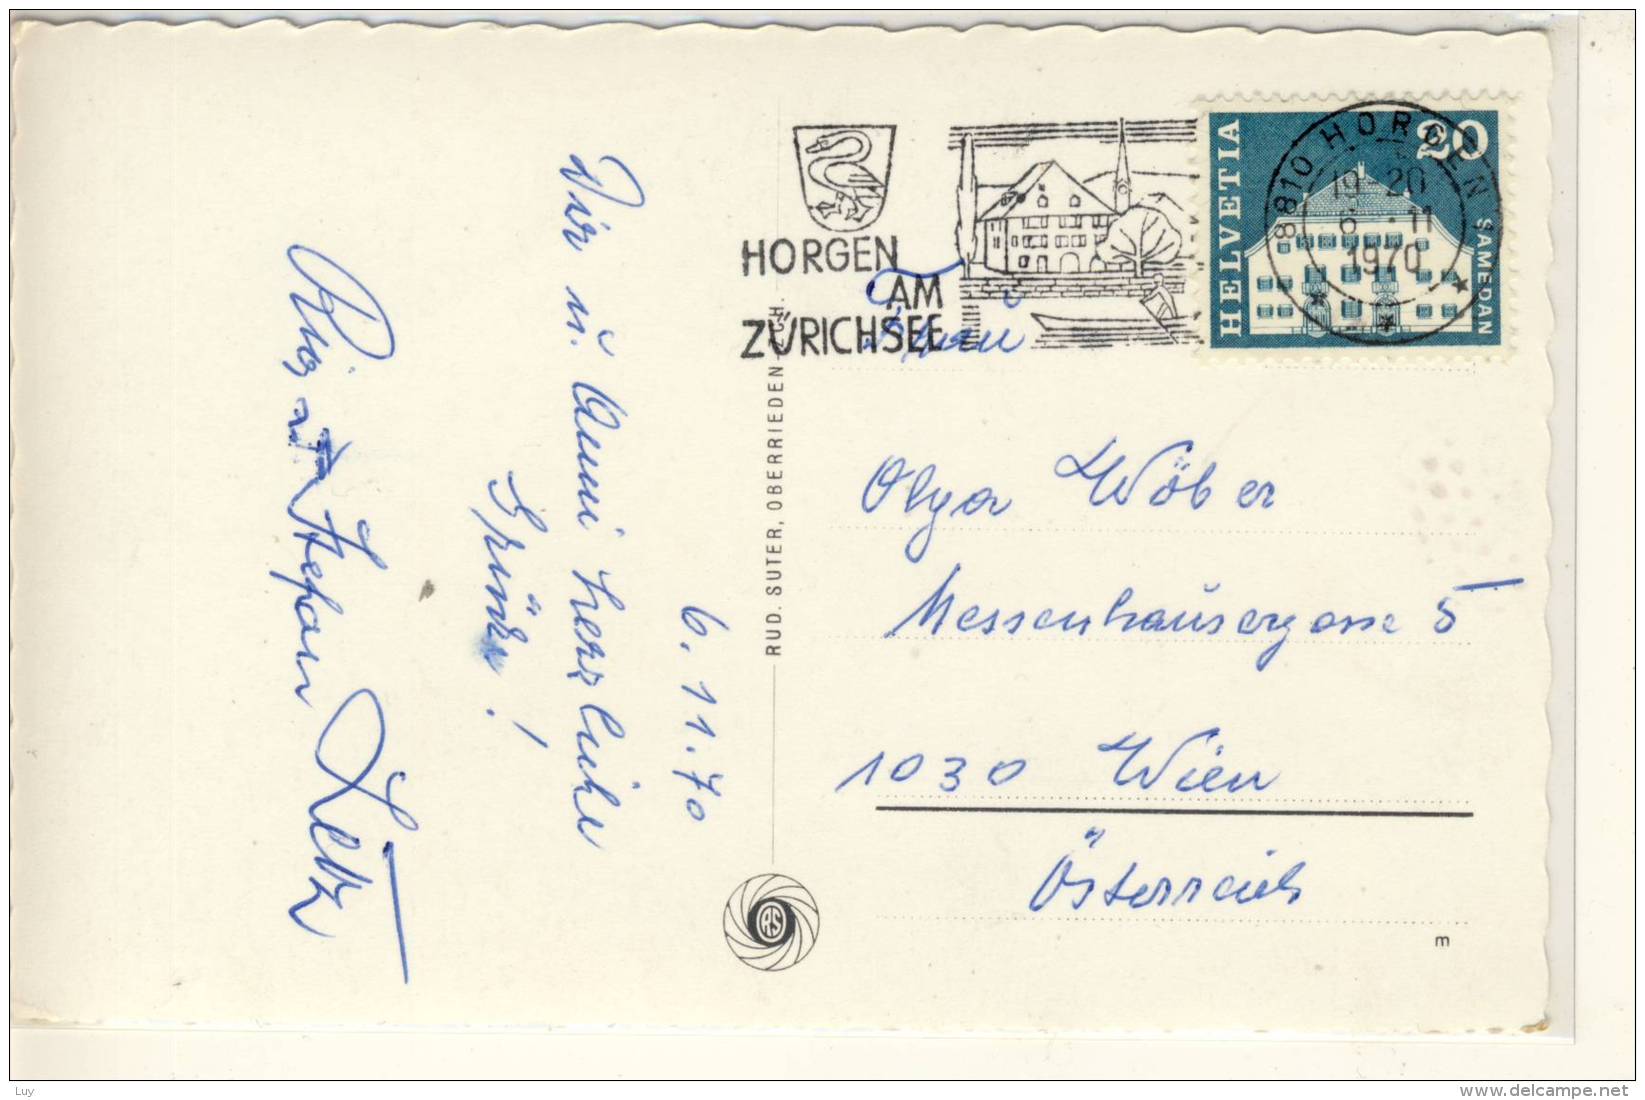 Wir u. Anni herzliche
Grüße!
Stefan
6.11.70
RUD. SUTER, OBERRIEDEN
RS
HORGEN
AM
ZÜRICHSEE
HELVETIA
20
SAMEDAN
8810 HORGEN
19-20
6.-11
1970
Frau
Olga Wöber
Messenhausergasse 5
1030 Wien
Österreich
m
Luy
www.delcampe.net